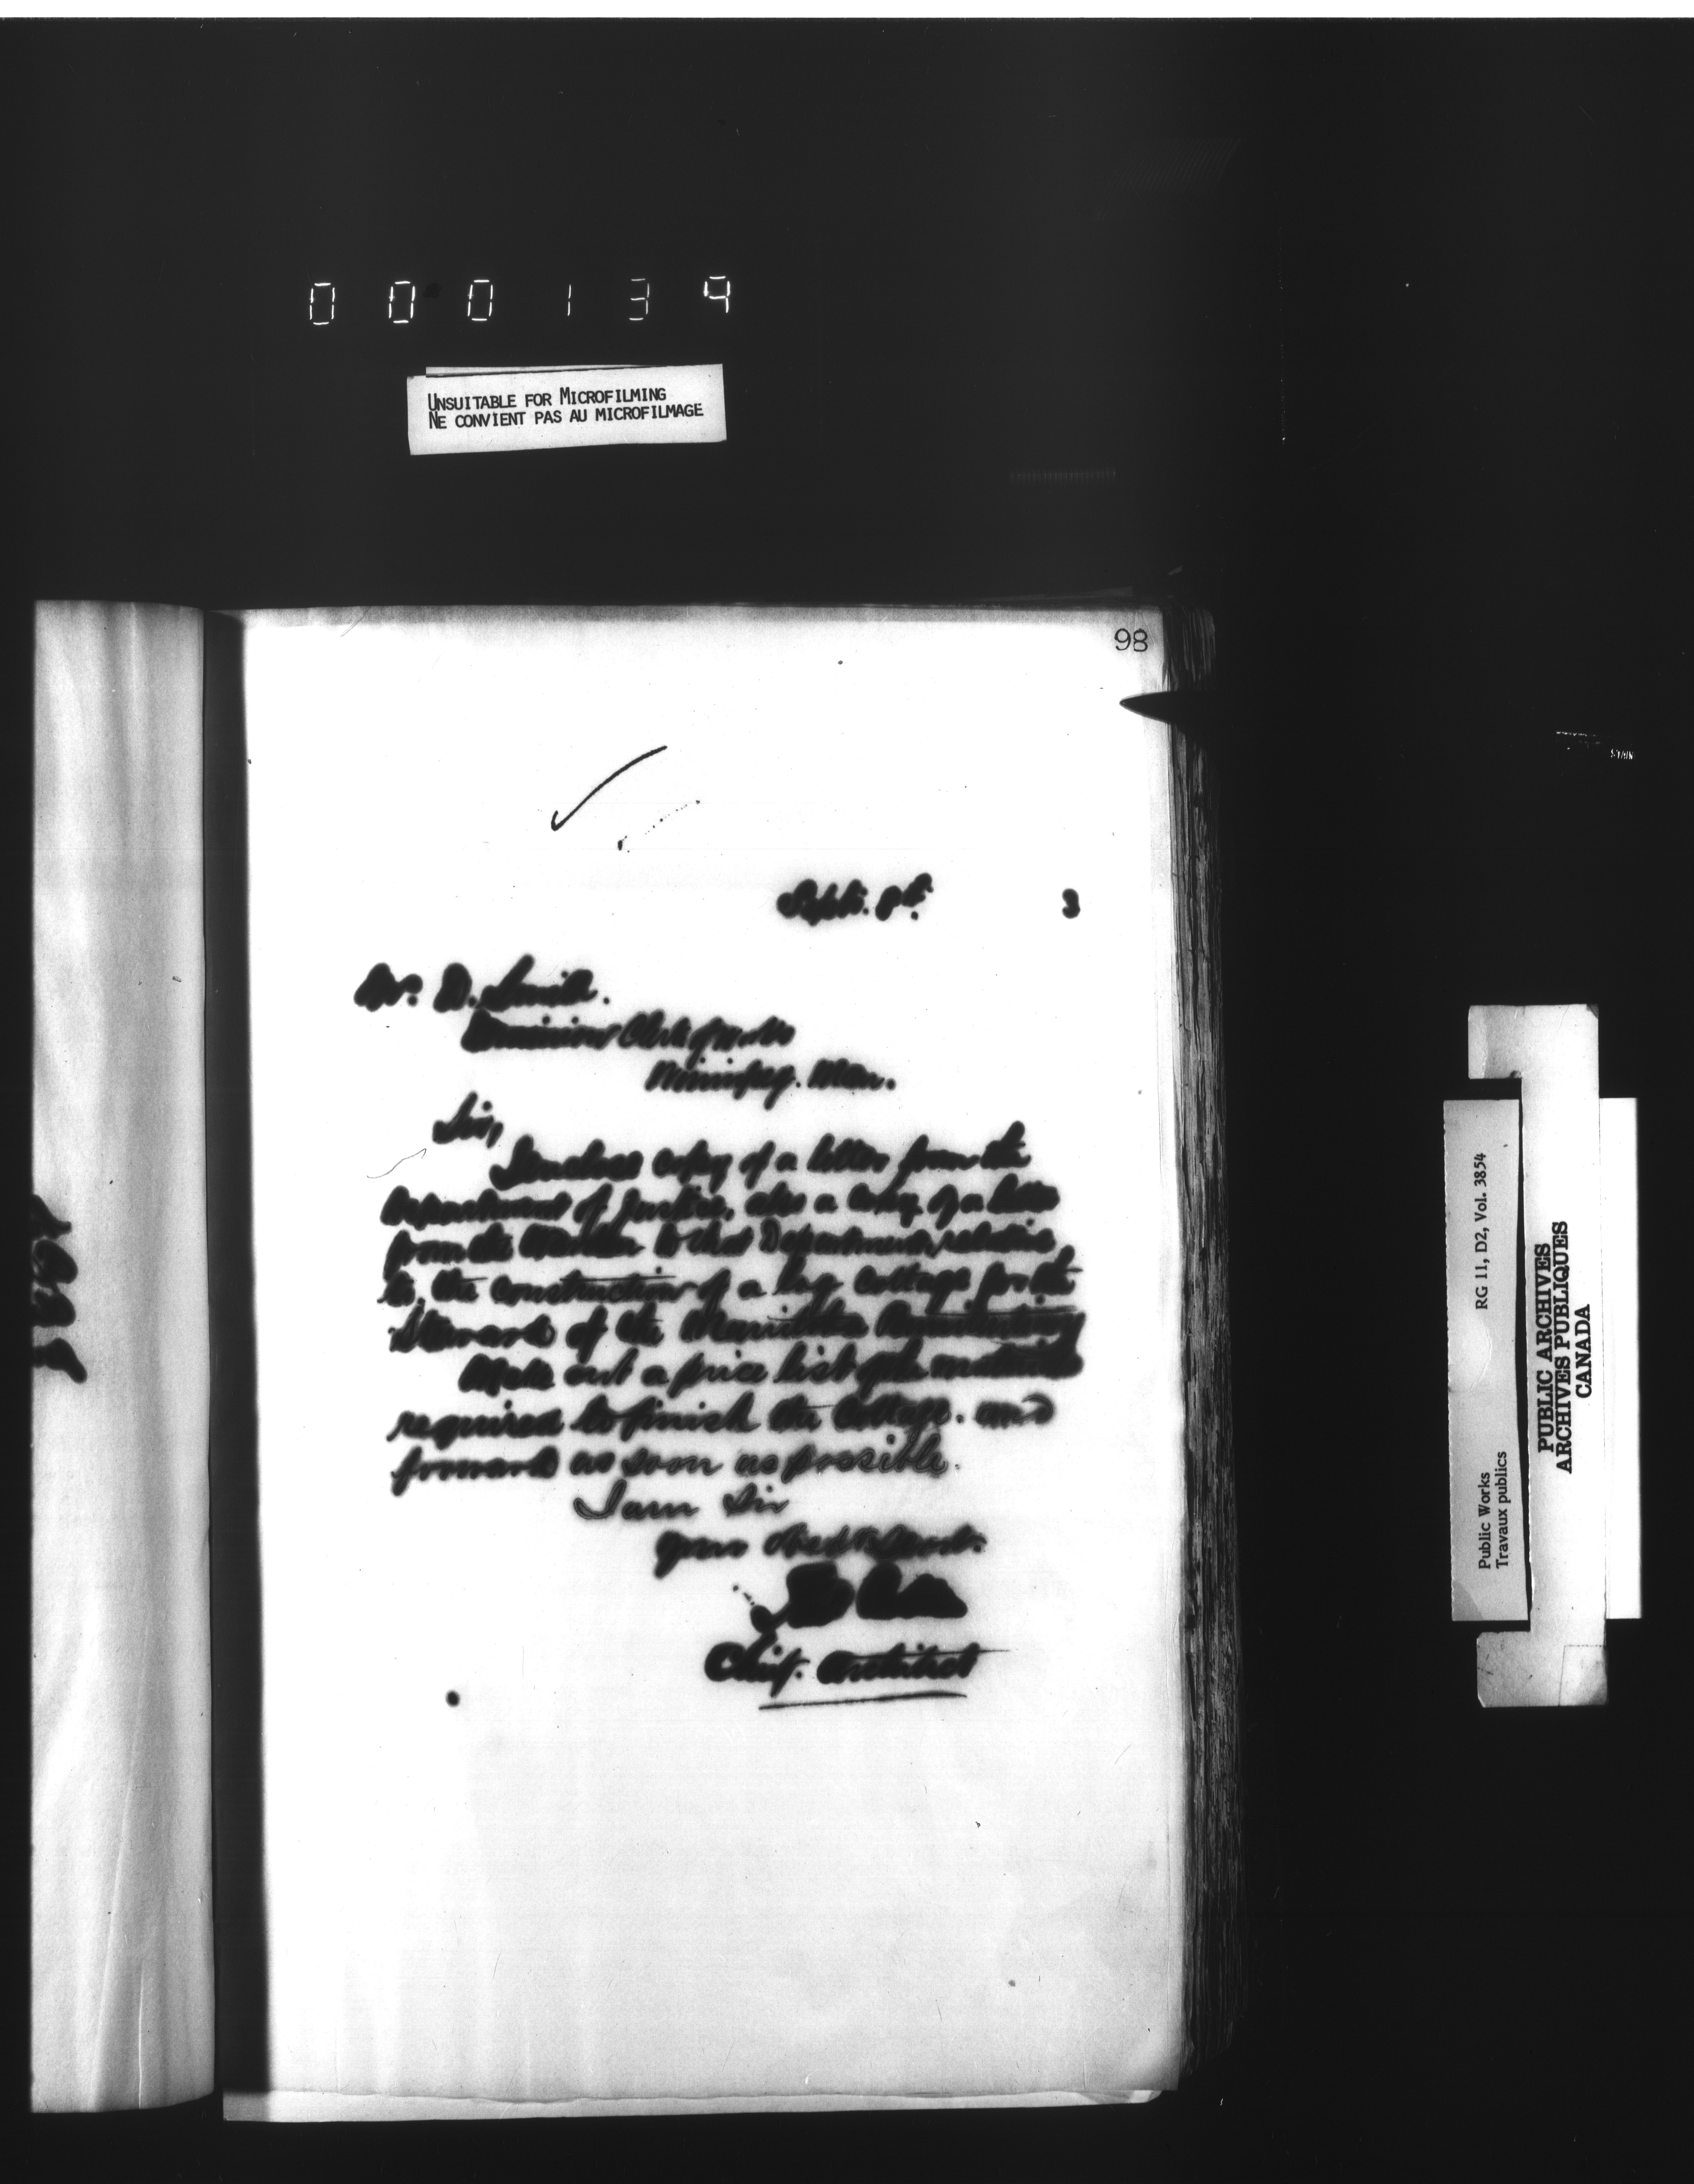 000134
UNSUITABLE FOR MICROFILMING
NE CONVIENT PAS AU MICROFILMAGE
98
Sept. 8th. 3
Mr. D. Smith.
Dominion Clerk of Works
Winnipeg. Man.
Sir,
I enclose copy of a letter from the
Department of Justice, also a copy of a letter
from the Warden to that Department, relative
to the construction of a log cottage for the
Steward of the Manitoba Penitentiary
Make out a price list of the materials
required to finish the Cottage. and
forward as soon as possible.
I am Sir
Your Obedt. Servt.
Chief Architect
Public Works
Travaux publics
RG 11, D2, Vol. 3854
PUBLIC ARCHIVES
ARCHIVES PUBLIQUES
CANADA